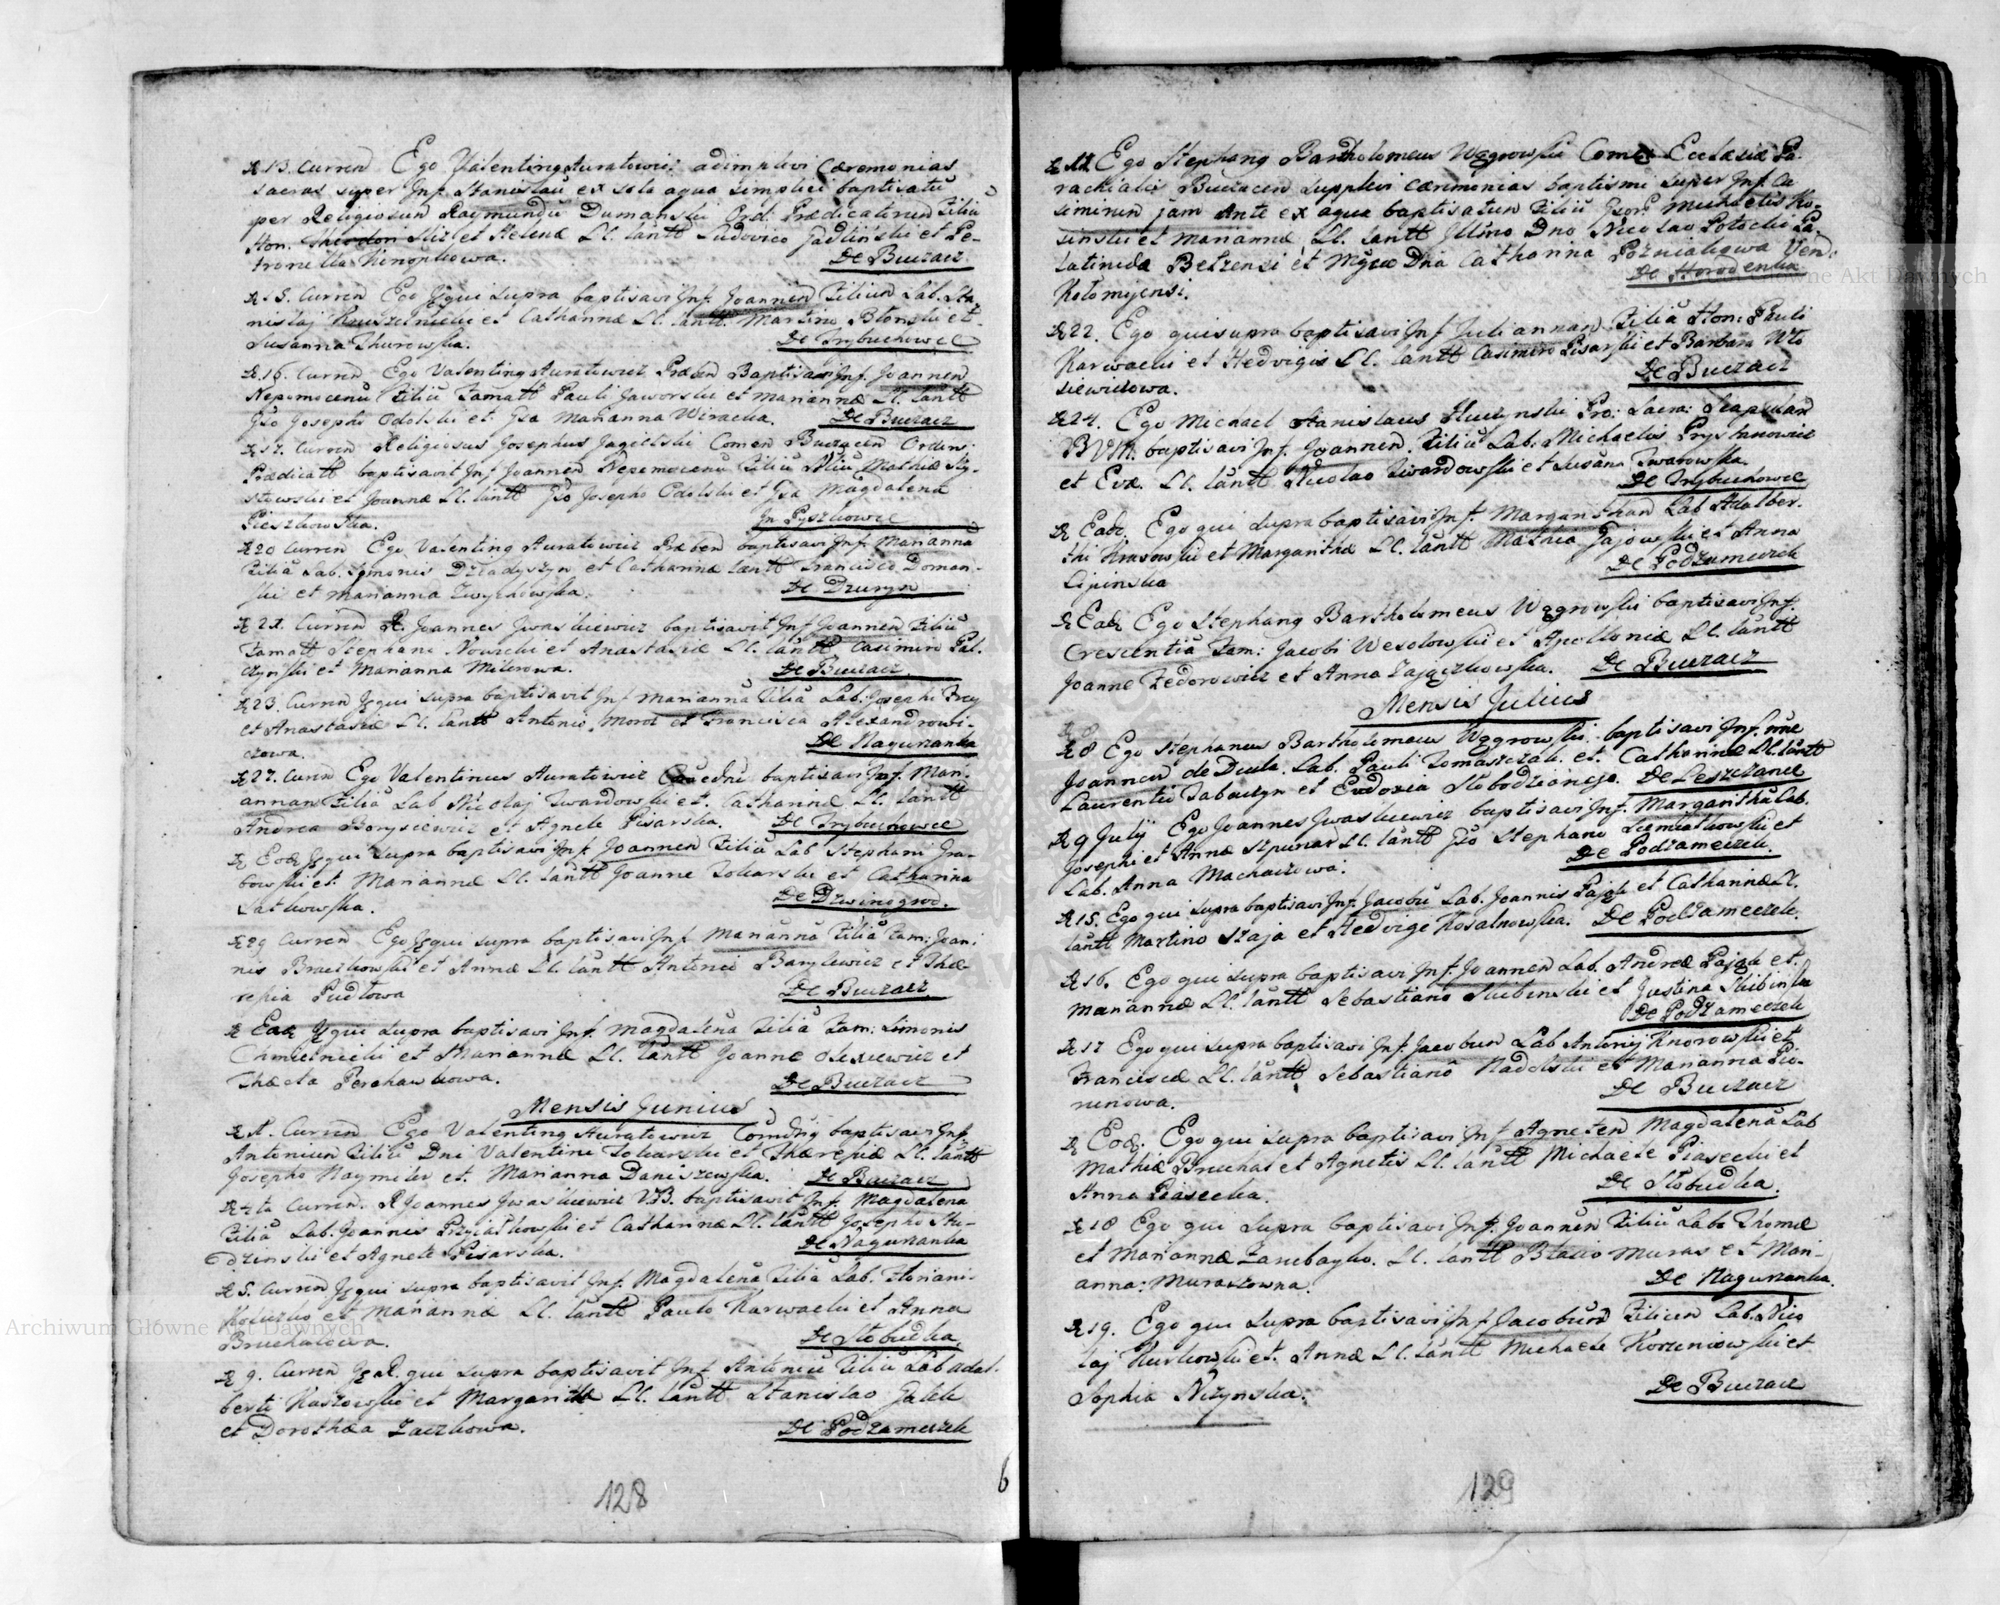 13. Curren Ego Valentinq Auratowicz adimplevi Cæremonias
sacras super Inf. Stanislaũ ex sola aqua simplici baptisatũ
per Religiosum Raymundũ Dumanski Ord: Prædicatorum Filiũ
Hon. et Helenæ Ll. Cantt Ludovico et Pe-
tronella Kinophowa. De Buczacz
15. Curren Ego qui supra baptisavi Inf. Joannem Filium Lab. Sta-
nislaj et Cathannæ Ll. Cantt. Martino Blonski et
Susanna Thurowska. De Trybuchowce
16. Curren Ego Valentinq Auratowicz Præben Baptisavi Inf. Joannem
Nepomucenũ Filiũ Famatt Pauli Jaworski et Mariannæ Ll. Cantt
Gso Josepho Odolski et Gsa Marianna Wiracka. De Buczacz
17. Curren Religiosus Josephus Jagielski Comen Buczacen Ordinis
Prædicatt baptisavit Inf Joannem Nepomucenũ Filiũ Mathiæ Sty-
stowski et Joannæ Ll. Cantt Gso Josepho Odolski et Gsa Magdalena
Pieszkowska. In Pyszkowce
20 Curren Ego Valentinq Auratowicz Præben baptisavi Inf. Mariannã
Filiã Lab. Symonis Dziadyszyn et Cathannæ Cantt Francisco Doman-
ski et Marianna Zwyzdowska. De Dzuryn
21. Curren R. Joannes Jwaskiewicz baptisavit Inf Joannem Filiũ
Famatt Stephani Nowicki et Anastasiæ Ll. Cantt Casimiro Pal-
czynski et Marianna Milerowa. De Buczacz
23. Curren Jqui supra baptisavit Inf Mariannã Filiã Lab. Josephi Frey
et Anastasiæ Ll. Cantt Antonio Moroz et Francisca Alexandrowi-
czowa. De Nagurzanka
27. Curren Ego Valentinus Auratowicz baptisavi Inf. Mari-
annam Filiã Lab Nicolaj Twardowski et. Catharinæ Ll. Cantt
Andrea Borysiewicz et Agnete Pisarska. De Trybuchowce
Eod Jqui supra baptisavi Inf Joannem Filiũ Lab Stephani Gra-
bowski et. Mariannæ Ll. Cantt Joanne Tokarski et Catharina
Latkowska. De Dzwinogrod.
29 Curren Ego Jqui supra baptisavi Inf Mariannã Filiã Fam: Joani-
nis Braczkowski et Annæ Ll. Cantt Antonio Barylewicz et Thæ-
resia Pudlowa De Buczacz
Ead Jqui supra baptisavi Inf. Magdalenã Filiã Fam: Simonis
Chmielnicki et Mariannæ Ll. Cantt Joanne Olexiewicz et
Thecla Perchawkowa. De Buczacz
Mensis Junius
1. Curren Ego Valentinq Auratowicz baptisavi Inf.
Antonium Filiũ Dni Valentini Tokarski et Theresiæ Ll. Cantt
Josepho Naymiler et. Marianna Daniszewska. De Buczacz
4ta Curren. R Joannes Jwaskiewicz V.B. baptisavit Inf. Magdalenã
Filiã Lab. Joannis Przyiatkowski et Catharinæ Ll. Cantt Josepho Stu-
dzinski et Agnete Pisarska. De Nagurzanka
5. Curren Jqui supra baptisavit Inf. Magdalenã Filiã Lab. Floriani
et Mariannæ Ll. Cantt Paulo Karwacki et Anna
Bruchalowa. De Slobudka
9. Curren R. qui supra baptisavit Inf Antoniũ Filiũ Lab Adal-
berti Kaszowski et Margarithæ Ll. Cantt Stanislao Galek
et Dorothæa Zaczkowa. De Podzameczek
128
6
Ego Stephanq Bartholomeus Węgrowski Comen Ecclesiæ Pa-
rachialis Buczacen supplevi cæremonias baptismi super Inf. Ca
simirum jam Ante ex aqua baptisatum Filiũ Gson Michaelis Ko-
sinski et Mariannæ Ll. Cantt Illmo Dno Nicolao Potocki Pa-
latinida Belzensi et Mgca Dna Catharina Pozniakowa Vend.
Kolomijensi. De Horodenka
22. Ego qui supra baptisavi Inf Juliannam Filiã Hon: Pauli
Karwacki et Hedvigis Ll. Cantt Casimiro Pisarski et Barbara Wto
siewiczowa. De Buczacz
24. Ego Michael Stanislaus Pro: Sacra: Scapular
BVM. baptisavi Inf. Joannem. Filiũ Lab. Michaelis Prystanowicz
et Evæ. Ll. Cantt Nicolao Twardowski et Susana Twarowska.
De Trybuchowce
Ead. Ego qui supra baptisavi Inf. Margaritham Lab Adalber-
thi Krasowski et Margarithæ Ll. Cantt Mathia Gajowski et Anna
Lipinska De Podzameczek
Ead Ego Stephanq Bartholomeus Węgrowski baptisavi Inf.
Crescentiã Fam: Jacobi Wesolowski et Apolloniæ Ll. Cantt
Joanne Fedorowicz et Anna Zajączkowska. De Buczacz
Mensis Julius
8 Ego Stephanus Bartholomeus Węgrowski. baptisavi Inf. nne
Joannem de Dukla. Lab. Pauli Tomaszczak. et. Catharinæ Ll. Cantt
Laurentio Tabaczyn et Eudoxia Slobodzianeja. De Leszczance
9 Julÿ Ego Joannes Jwaskiewicz baptisavi Inf. Margarithã Lab.
Josephi et Annæ Szpunar Ll. Cantt Gso Stephano Siemiatkowski et
Lab. Anna Machaczowa. De Podzameczek.
15. Ego qui supra baptisavi Inf. Jacobũ Lab. Joannis Pająk et Catharinæ Ll.
Cantt Martino Szaja et Hedvige Kosalnowska. De Podzameczek.
16. Ego qui supra baptisavi Inf. Joannem Lab. Andreæ Pająk et.
Mariannæ Ll. Cantt Sebastiano Skibinski et Justina Skibinska
De Podzameczek
17 Ego qui supra baptisavi Inf. Jacobum Lab Antonij Knorowski et
Franciscæ Ll. Cantt Sebastiano Nadolski et Marianna Pio-
runowa. De Buczacz
Eod. Ego qui supra baptisavi Inf Agnetem Magdalenã Lab
Mathiæ Bruchal et Agnetis Ll. Cantt Michaele Piasecki et
Anna Piasecka. De Slobudka.
18 Ego qui supra baptisavi Inf. Joannem Filiũ Labo Thomæ
et Mariannæ Ll. Cantt Blasio Muras et Mari-
anna: Muraszowna. De Nagurzanka.
19. Ego qui supra baptisavi Inf Jacobum Filium Lab. Nico
laj Kurkowski et. Annæ Ll. Cantt Michaele Korzeniowski et
Sophia Nizynska. De Buczacz
129
Archiwum Główne Akt Dawnych
Archiwum Główne Akt Dawnych